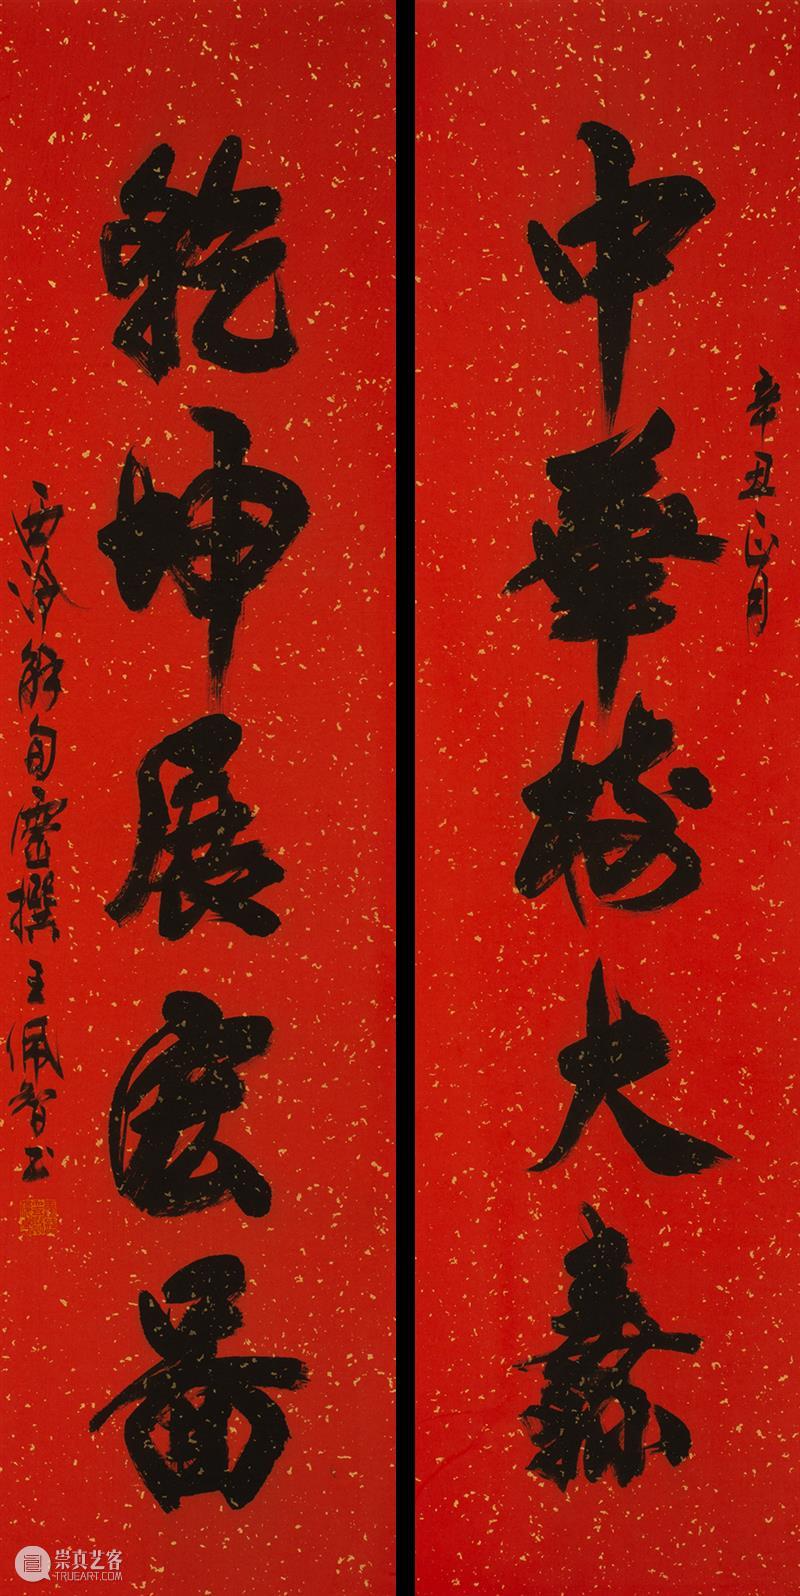 中華樹大纛
辛丑正月
乾坤展宏圖
西泠解撰王佩智书
崇真艺客
TRUEART.COM